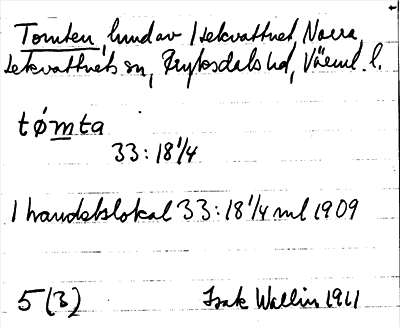 Tomten, hmd av 1 Lekvattnet Norra,
Lekvattnets sn, Fryksdals hd, Värml. l.
tømta
33:18 1/4
1 handelslokal 33:18 1/4 ml 1909
5 (3) Isak Wallin 1911